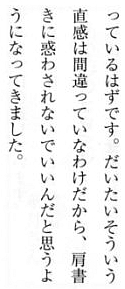 っているはずです。だいたいそういう
直感は間違っていないわけだから、肩書
きに惑わされないでいいんだと思うよ
うになってきました。